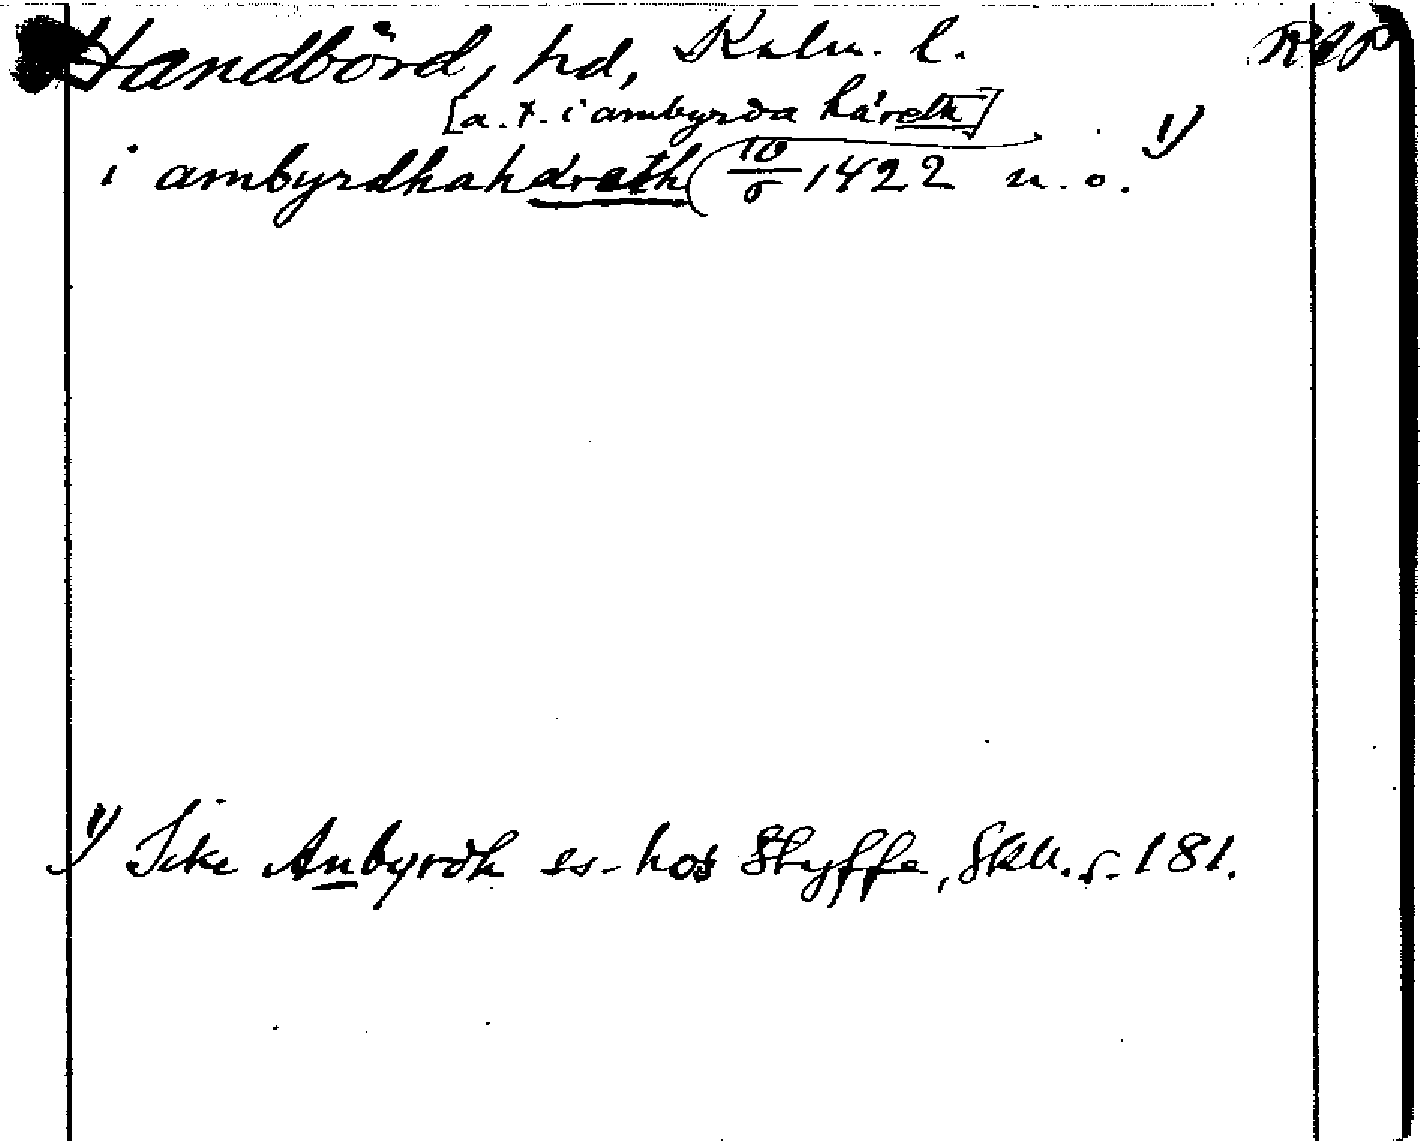 Handbörd, hd, Kalm. l. RAp
[a. t. i ambyrda håreth]
i ambyrdhahäreth 10/5 1422 n. o. 1)
1) Icke Anbyrdh es. hos Styffe, SkU. s. 181.